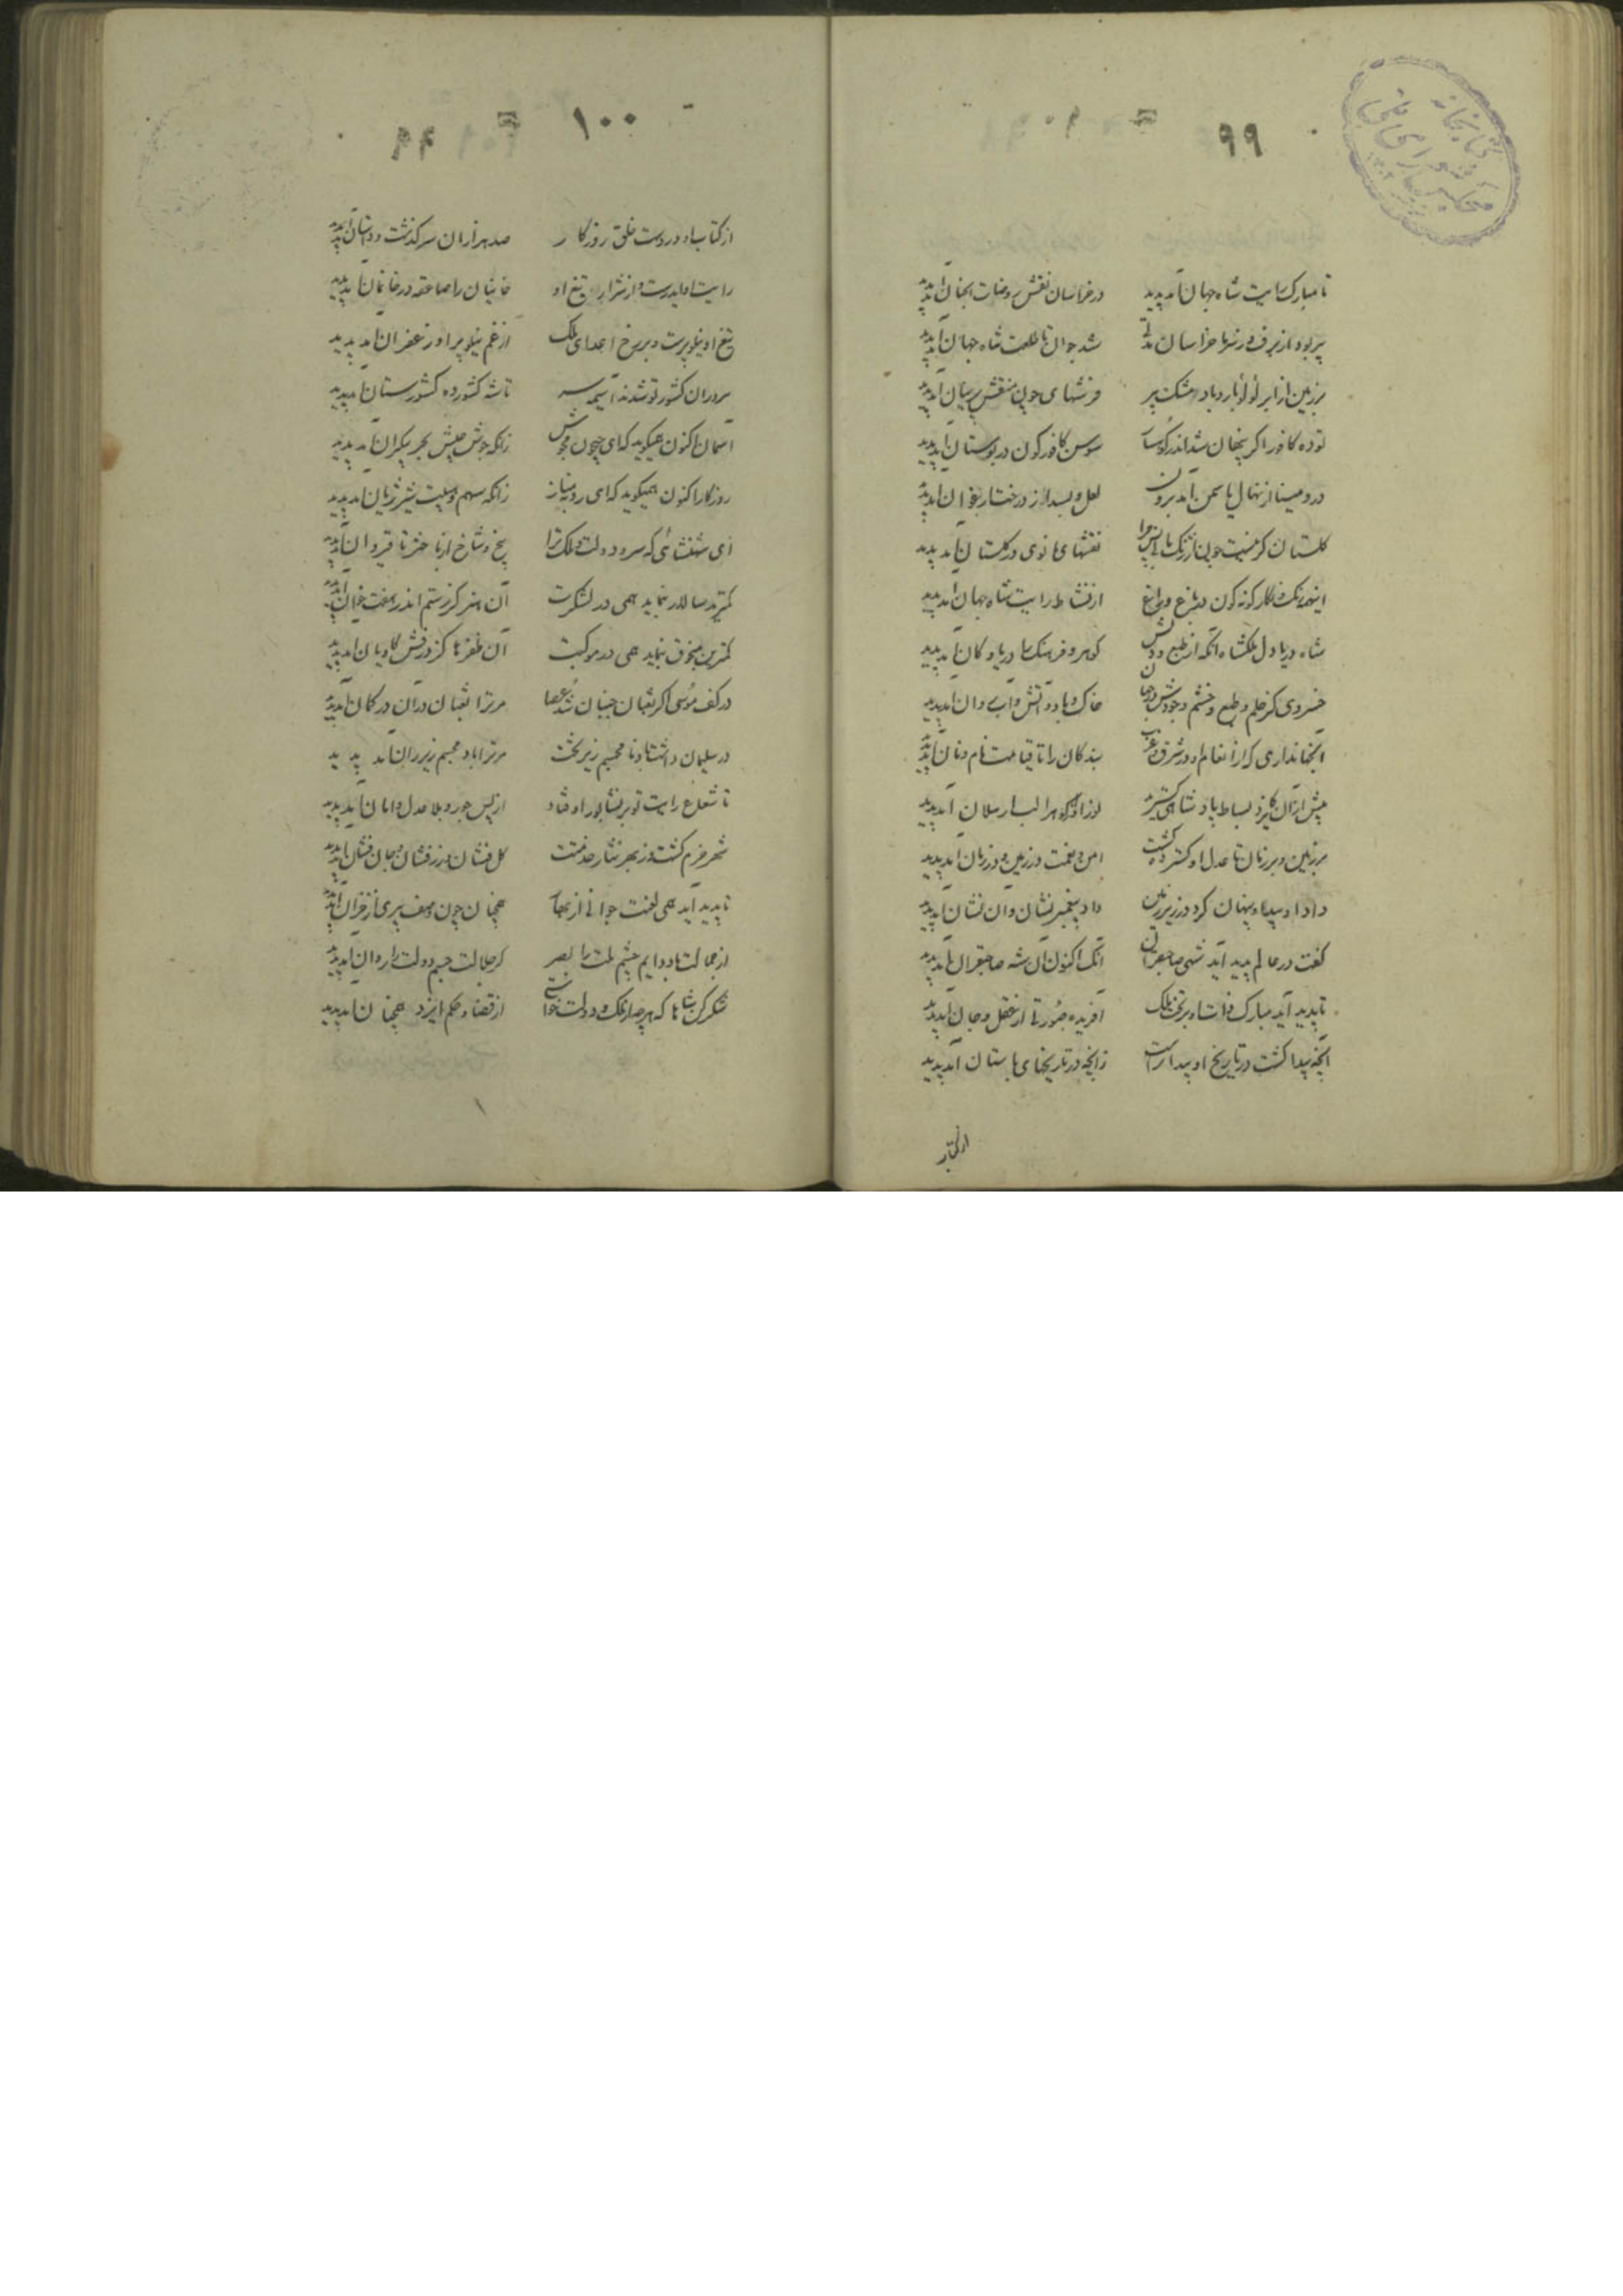 ۹۹
تا مبارک رایت شاه جهان آمد پدید در خراسان نقش روضات الجنان آمد پدید
پیر بود از برف و سرما خراسان مدتی شد جوان تا طلعت شاه جهان آمد پدید
بر زمین از ابر لؤلؤبار و باد مشک بر فرشهای چون منقش پرنیان آمد پدید
توده کافور اگر پنهان شد اندر کوهسار سوسن کافورگون در بوستان آمد پدید
در و مینا از نهال یاسمن آمد برون لعل و بسد از درخت ارغوان آمد پدید
گلستان گر نیست چون ارتنگ مانی پس چرا نقشهای مانوی در گلستان آمد پدید
اینهمه رنگ و نگار گونه گون در باغ و راغ از نشاط رایت شاه جهان آمد پدید
شاه دریا دل ملکشاه آنکه از طبع و دلش گوهر و فرهنگ را دریا و کان آمد پدید
خسروی کز حلم و طبع و خشم وجودش در جهان خاک و باد و آتش و آب روان آمد پدید
آنجهانداری که از انعام او در شرق و غرب بندگان را تا قیامت نام و نان آمد پدید
پیش از آن کایزد بساط پادشاهی گسترید نور او از گوهر الب ارسلان آمد پدید
بر زمین و بر زمان تا عدل او گسترده گشت امن و نعمت در زمین و در زمان آمد پدید
داد او بیداد پنهان کرد در زیر زمین داد پیغمبر نشان وان نشان آمد پدید
گفت در عالم پدید آید شهی صاحبقران آنک اکنون آن شه صاحبقران آمد پدید
تا پدید آید مبارک ذات او بر تخت ملک آفریده صورتی از عقل و جان آمد پدید
آنچه پیدا گشت در تاریخ او پیداتر است زانچه در تاریخهای باستان آمد پدید
از کتاب
۱۰۰
از کتاب او در دست خلق روزگار صد هزاران سرگذشت و داستان آمد پدید
رایت او ابرست و از شرار تیغ او خانیان را صاعقه در خانمان آمد پدید
تیغ او نیلوفرست و بر رخ اعدای ملک از غم نیلوفر او زعفران آمد پدید
سروران کشور تو شدند آسیمه سر تا شه کشورده کشورستان آمد پدید
آسمان اکنون همیگوید که ای جیحون مجوش زانکه جوش جیش بحر بیکران آمد پدید
روزگار اکنون همیگوید که ای روبه مناز زانکه سهم و هیبت شیر ژیان آمد پدید
ای شهنشاهی که سرو دولت و ملک ترا بیخ و شاخ از باختر تا قیروان آمد پدید
کمترین سالار بنماید همی در لشکرت آن هنر کز رستم اندر هفتخوان آمد پدید
کمترین منجوق بنماید همی در موکبت آن ظفرها کز درفش کاویان آمد پدید
در کف موسی اگر ثعبان جنبان شد عصا مر ترا ثعبان در آن در کمان آمد پدید
ور سلیمان داشت باد نامجسم زیر تخت مر ترا باد مجسم زیر ران آمد پدید
تا شعاع رایت تو بر نشابور اوفتاد از پس جور و بلا عدل و امان آمد پدید
شهر خرم گشت و ز بهر نثار خدمتت گل فشان و زر فشان و جان فشان آمد پدید
تا پدید آید همی لعنت جوانی از بهار همچنان چون وصف پیری از خزان آمد پدید
از جمالت باد دایم چشم ملت را بصر کز جلالت جسم دولت را روان آمد پدید
شکر کن شاها که هر چه از ملک و دولت خواستی از قضا و حکم ایزد همچنان آمد پدید